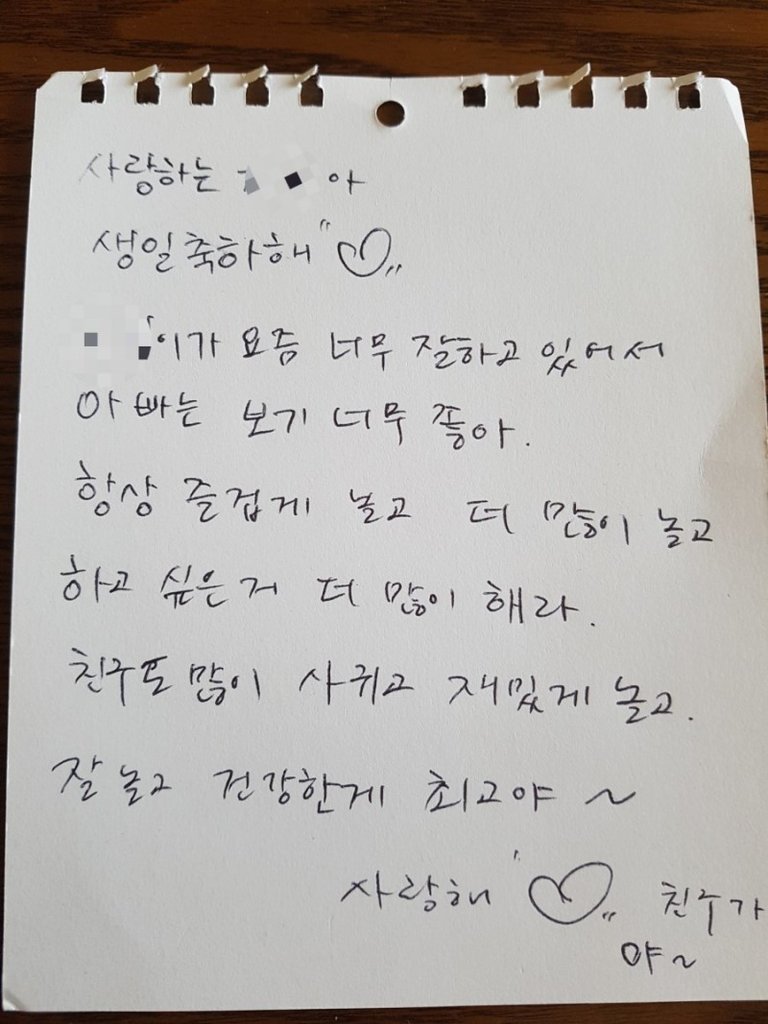 사랑하는 아
생일축하해"♡"
이가 요즘 너무 잘하고 있어서
아빠는 보기 너무 좋아.
항상 즐겁게 놀고 더 많이 놀고
하고 싶은거 더 많이 해라.
친구도 많이 사귀고 재밌게 놀고.
잘 놀고 건강한게 최고야 ~
사랑해 '♡" 친구가
야~